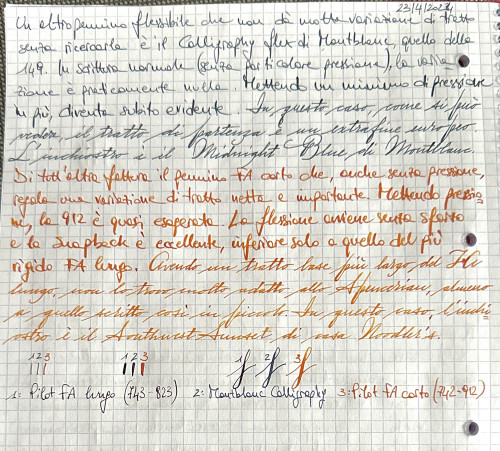 23/4/2024
Un altro pennino flessibile che non dà molta variazione di tratto
senza ricercarla è il Calligraphy flex di Montblanc, quello della
149. In scrittura normale (senza particolare pressione), la varia
zione è praticamente nulla. Mettendo un minimo di pressione
in più, diventa subito evidente. In questo caso, come si può
vedere, il tratto di partenza è un extrafine europeo.
L'inchiostro è il Midnight Blue di Montblanc.
Di tutt'altra fattura il pennino FA corto che, anche senza pressione,
regala una variazione di tratto netta e importante. Mettendo pressio-
ne, la 912 è quasi esagerata. La flessione avviene senza sforzo
e lo snapback è eccellente, inferiore solo a quello del più
rigido FA lungo. Avendo un tratto base più largo del FA
lungo, non lo trovo molto adatto allo Spencerian, almeno
a quello scritto così in piccolo. In questo caso, l'inchi
ostro è il Southwest Sunset di casa Noodler's.
1 2 3 1 2 3 1f 2f 3f
1: Pilot FA lungo (743-823) 2: Montblanc Calligraphy 3: Pilot FA corto (742-912)